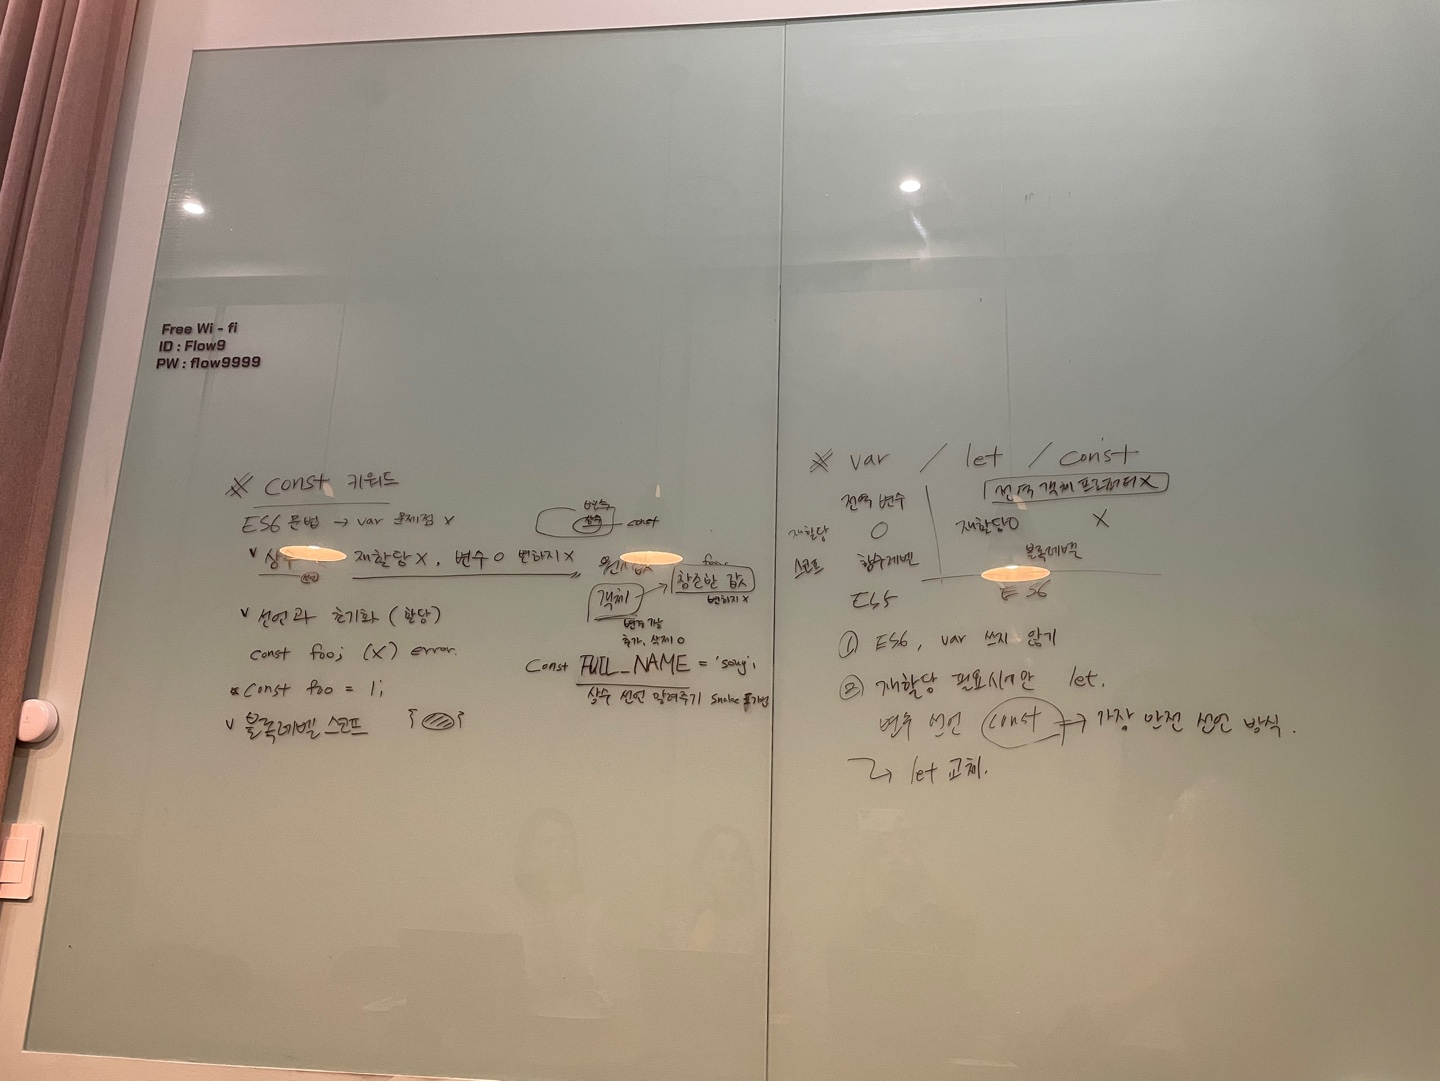 Free Wi - fi
ID : Flow9
PW : flow9999
※ const 키워드
ES6 문법 → var 문제점 x
v 상수
선언
재할당 x, 변수 o 변하지 x
v 선언과 초기화 (할당)
const foo; (x) error.
* const foo = 1;
v 블록레벨 스코프 { }
변수
상수
const
원시값
객체 → 참조한 값
변하지 x
변경 가능
추가, 삭제 o
Const FULL_NAME =
상수 선언 알려주기 snake 표기법
※ var / let / const
전역 변수
전역 객체 프로퍼티 x
재할당 O
재할당O
X
스코프 함수레벨
블록레벨
ES5
ES6
① ES6, var 쓰지 않기
② 재할당 필요시에만 let.
변수 선언 const ⇒ 가장 안전 선언 방식.
→ let 교체.